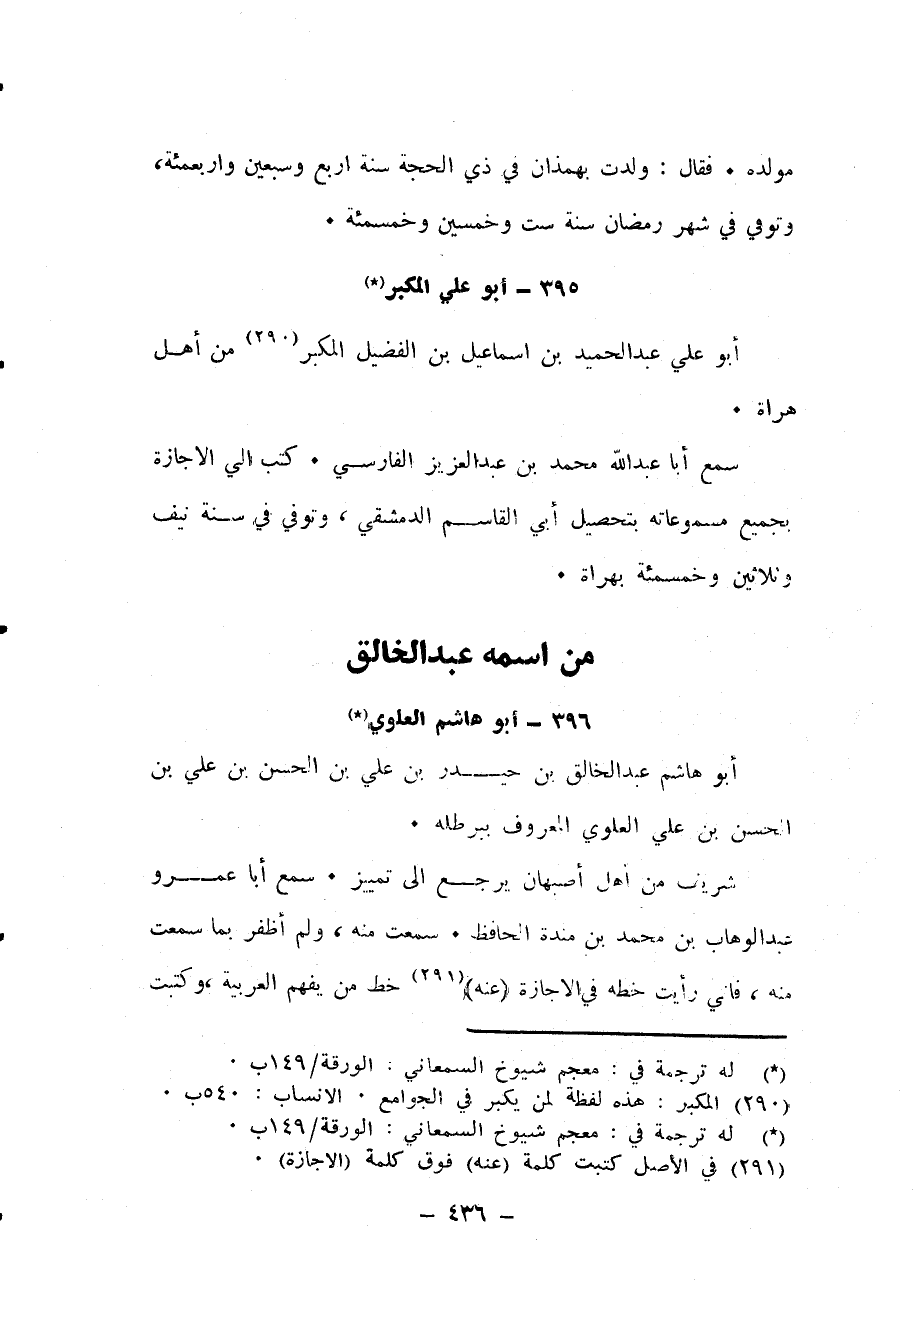 مولده • فقال : ولدت بهمذان في ذي الحجة سنة اربع وسبعين واربعمئة،
وتوفي في شهر رمضان سنة ست وخمسين وخمسمئة •
٣٩٥ – أبو علي المكبر(*)
أبو علي عبدالحميد بن اسماعيل بن الفضيل المكبر(٢٩٠) من أهـل
هراة •
سمع أبا عبدالله محمد بن عبدالعزيز الفارسـي • كتب الي الاجازة
بجميع مسموعاته بتحصيل أبي القاسـم الدمشقي ، وتوفي في سـنة نيف
وثلاثين وخمسمئة بهراة •
من اسمه عبدالخالق
٣٩٦ – أبو هاشم العلوي(*)
أبو هاشم عبدالخالق بن حيـدر بن علي بن الحسن بن علي بن
الحسن بن علي العلوي المعروف ببرطله •
شريف من أهل أصبهان يرجـع الى تمييز • سمع أبا عمـرو
عبدالوهاب بن محمد بن مندة الحافظ • سمعت منه ، ولم أظفر بما سمعت
منه ، فاني رأيت خطه في الاجازة (عنه)(٢٩١) خط من يفهم العربية ،وكتبت
(*) له ترجمة في : معجم شيوخ السمعاني : الورقة/١٤٩ب •
(٢٩٠) المكبر : هذه لفظة لمن يكبر في الجوامع • الانساب : ٥٤٠ب •
(*) له ترجمة في : معجم شيوخ السمعاني : الورقة/١٤٩ب •
(٢٩١) في الأصل كتبت كلمة (عنه) فوق كلمة (الاجازة) •
– ٤٣٦ –